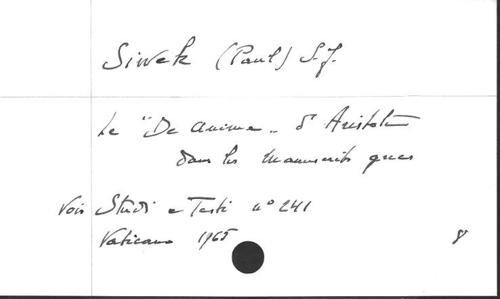 Siwek (Paul) S.J.
Le "De anima" d'Aristote
dans les manuscrits grecs
Voir Studi e Testi n° 241
Vaticano 1965
8